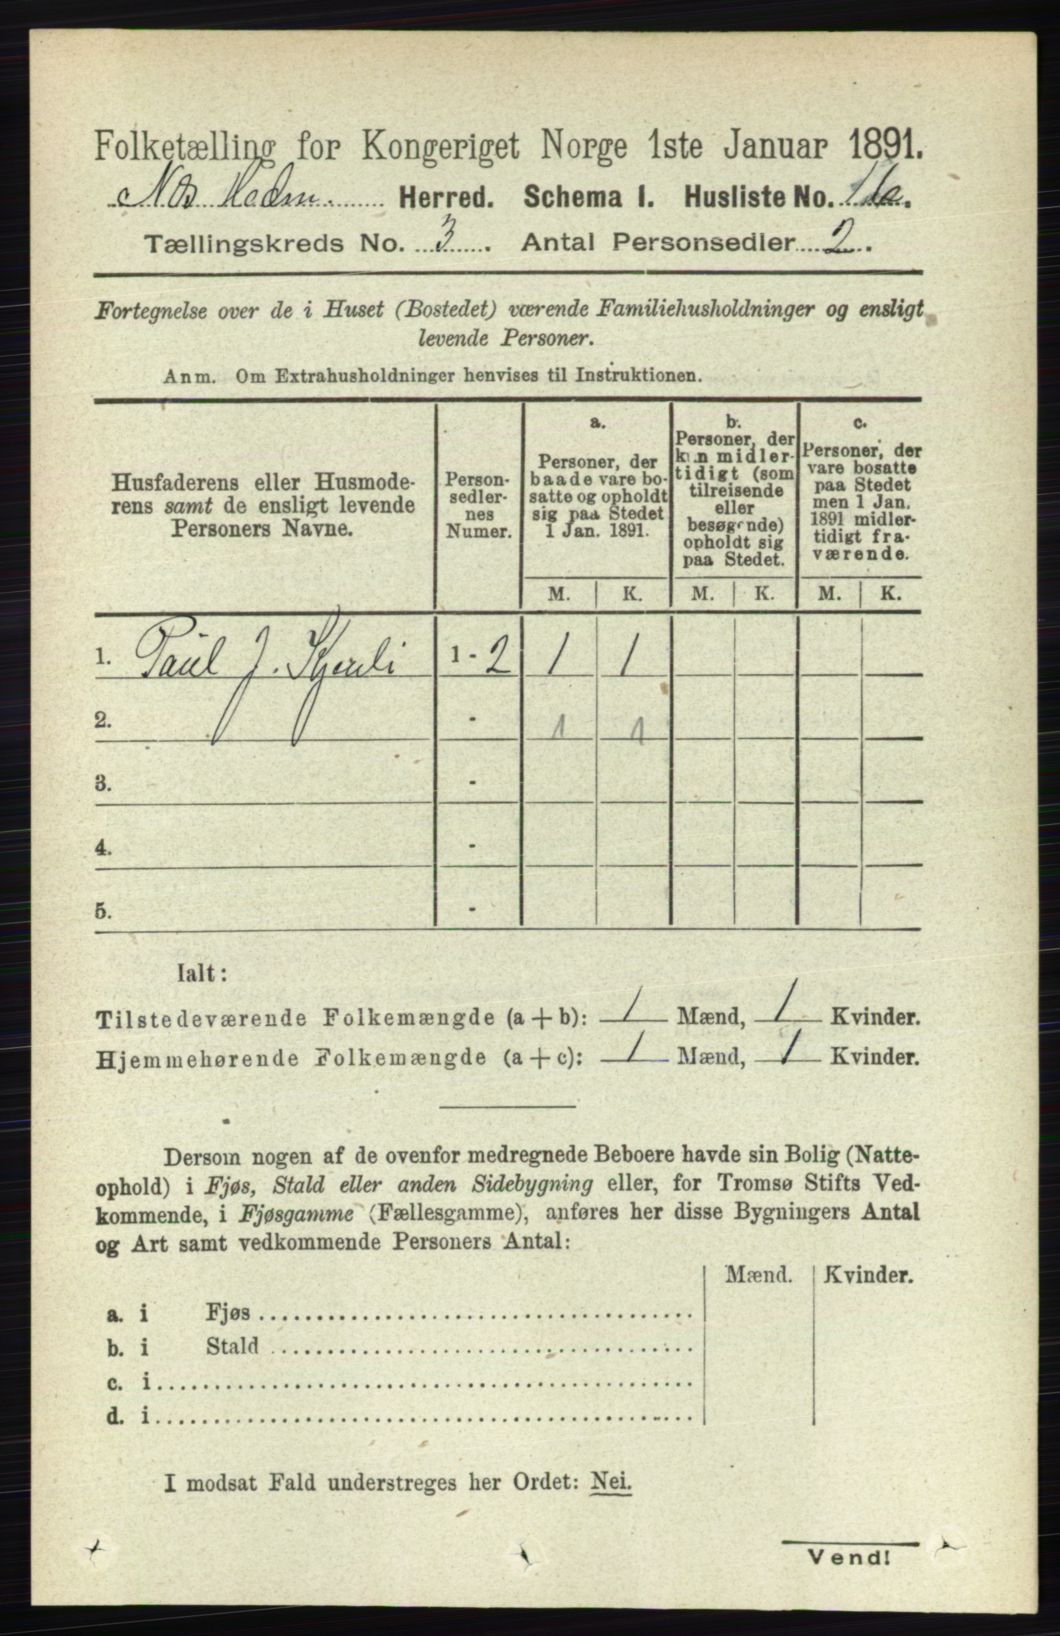 Folketælling for Kongeriget Norge 1ste Januar 1891.
Herred. Schema I. Husliste No.
Tællingskreds No. 3. Antal Personsedler 2.
Fortegnelse over de i Huset (Bostedet) værende Familiehusholdninger og ensligt
levende Personer.
Anm. Om Extrahusholdninger henvises til Instruktionen.
Husfaderens eller Husmode-
rens samt de ensligt levende
Personers Navne.
Person-
sedler-
nes
Numer.
a.
Personer, der
baade vare bo-
satte og opholdt
sig paa Stedet
1 Jan. 1891.
b.
Personer, der
kun midler-
tidigt (som
tilreisende
eller
besøgende)
opholdt sig
paa Stedet.
c.
Personer, der
vare bosatte
paa Stedet
men 1 Jan.
1891 midler-
tidigt fra-
værende.
M. K. M. K. M. K.
1. Paul J. 1 - 2 1 1
2. - 1 1
3. -
4. -
5. -
Ialt:
Tilstedeværende Folkemængde (a + b): 1 Mænd, 1 Kvinder.
Hjemmehørende Folkemængde (a + c): 1 Mænd, 1 Kvinder.
Dersom nogen af de ovenfor medregnede Beboere havde sin Bolig (Natte-
ophold) i Fjøs, Stald eller anden Sidebygning eller, for Tromsø Stifts Ved-
kommende, i Fjøsgamme (Fællesgamme), anføres her disse Bygningers Antal
og Art samt vedkommende Personers Antal:
Mænd. Kvinder.
a. i Fjøs
b. i Stald
c. i
d. i
I modsat Fald understreges her Ordet: Nei.
Vend!